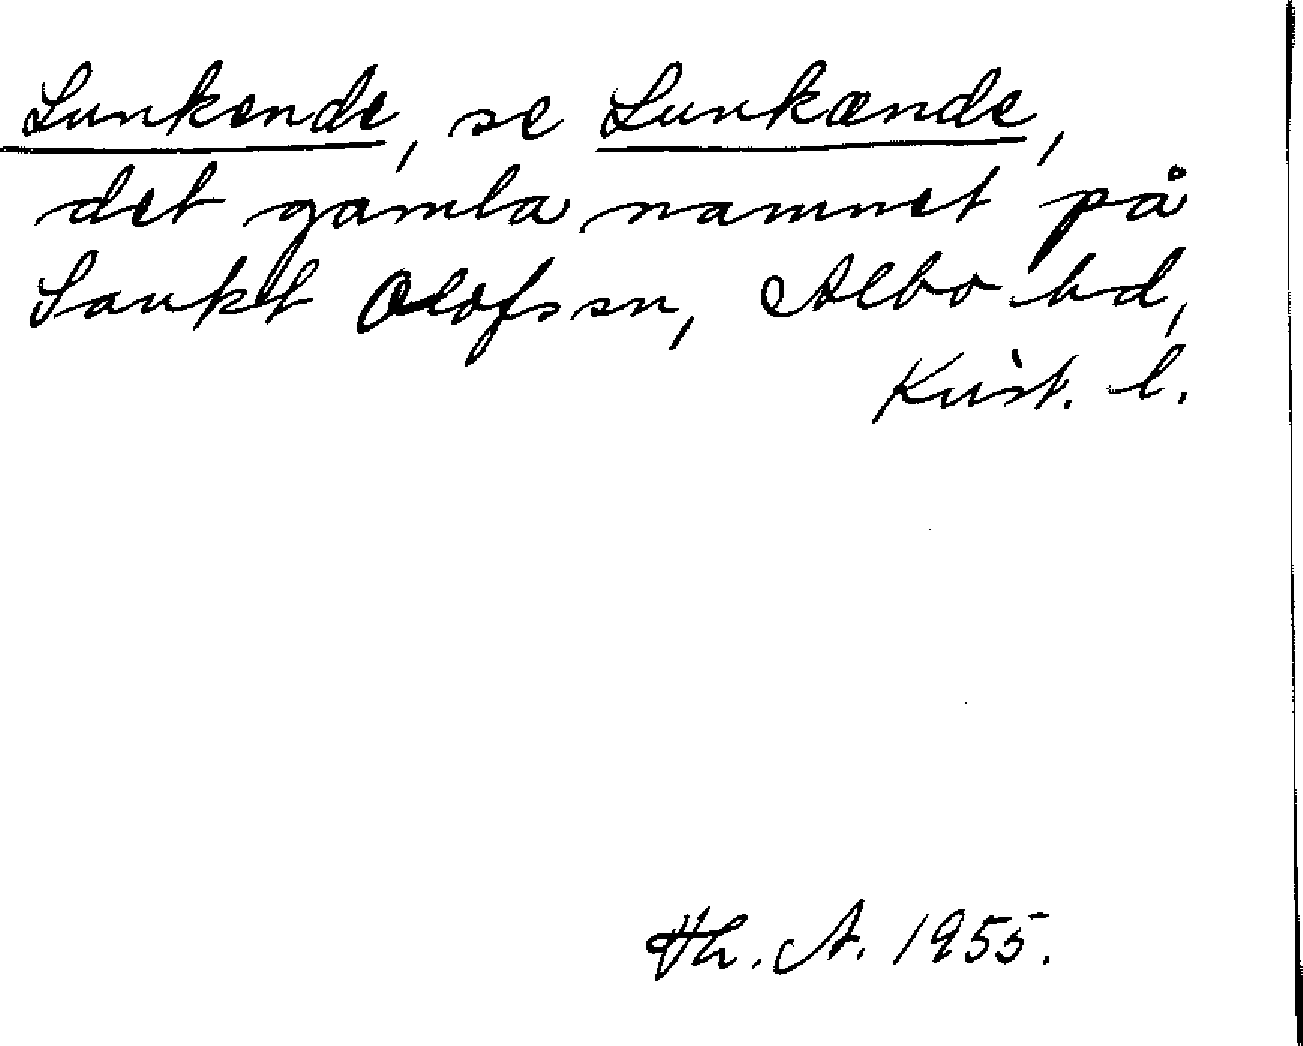 Lunkende, se Lunkænde,
det gamla namnet på
Sankt Olofs sn, Albo hd,
Krist. l.
Th. A. 1955.